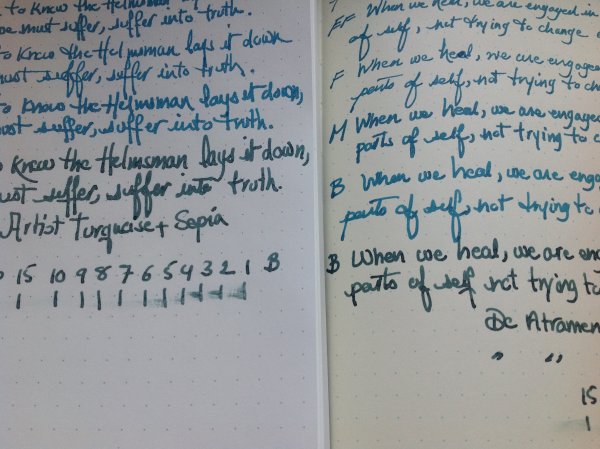 to Know the Helmsman
we must suffer, suffer into truth.
to Know the Helmsman lays it down
must suffer, suffer into truth.
to Know the Helmsman lays it down,
must suffer, suffer into truth.
Know the Helmsman lays it down,
must suffer, suffer into truth.
Artist Turquoise + Sepia
15 10 9 8 7 6 5 4 3 2 1 B
1 1 1 1 1 1 1 1 1 1 1
EF When we heal, we are engaged in
of self, not trying to change
F When we heal, we are engaged
parts of self, not trying to cha
M When we heal, we are engaged
parts of self, not trying to c
B When we heal, we are enga
parts of self, not trying to
B When we heal, we are en
parts of self not trying to
Dc Atramen
" "
15
1